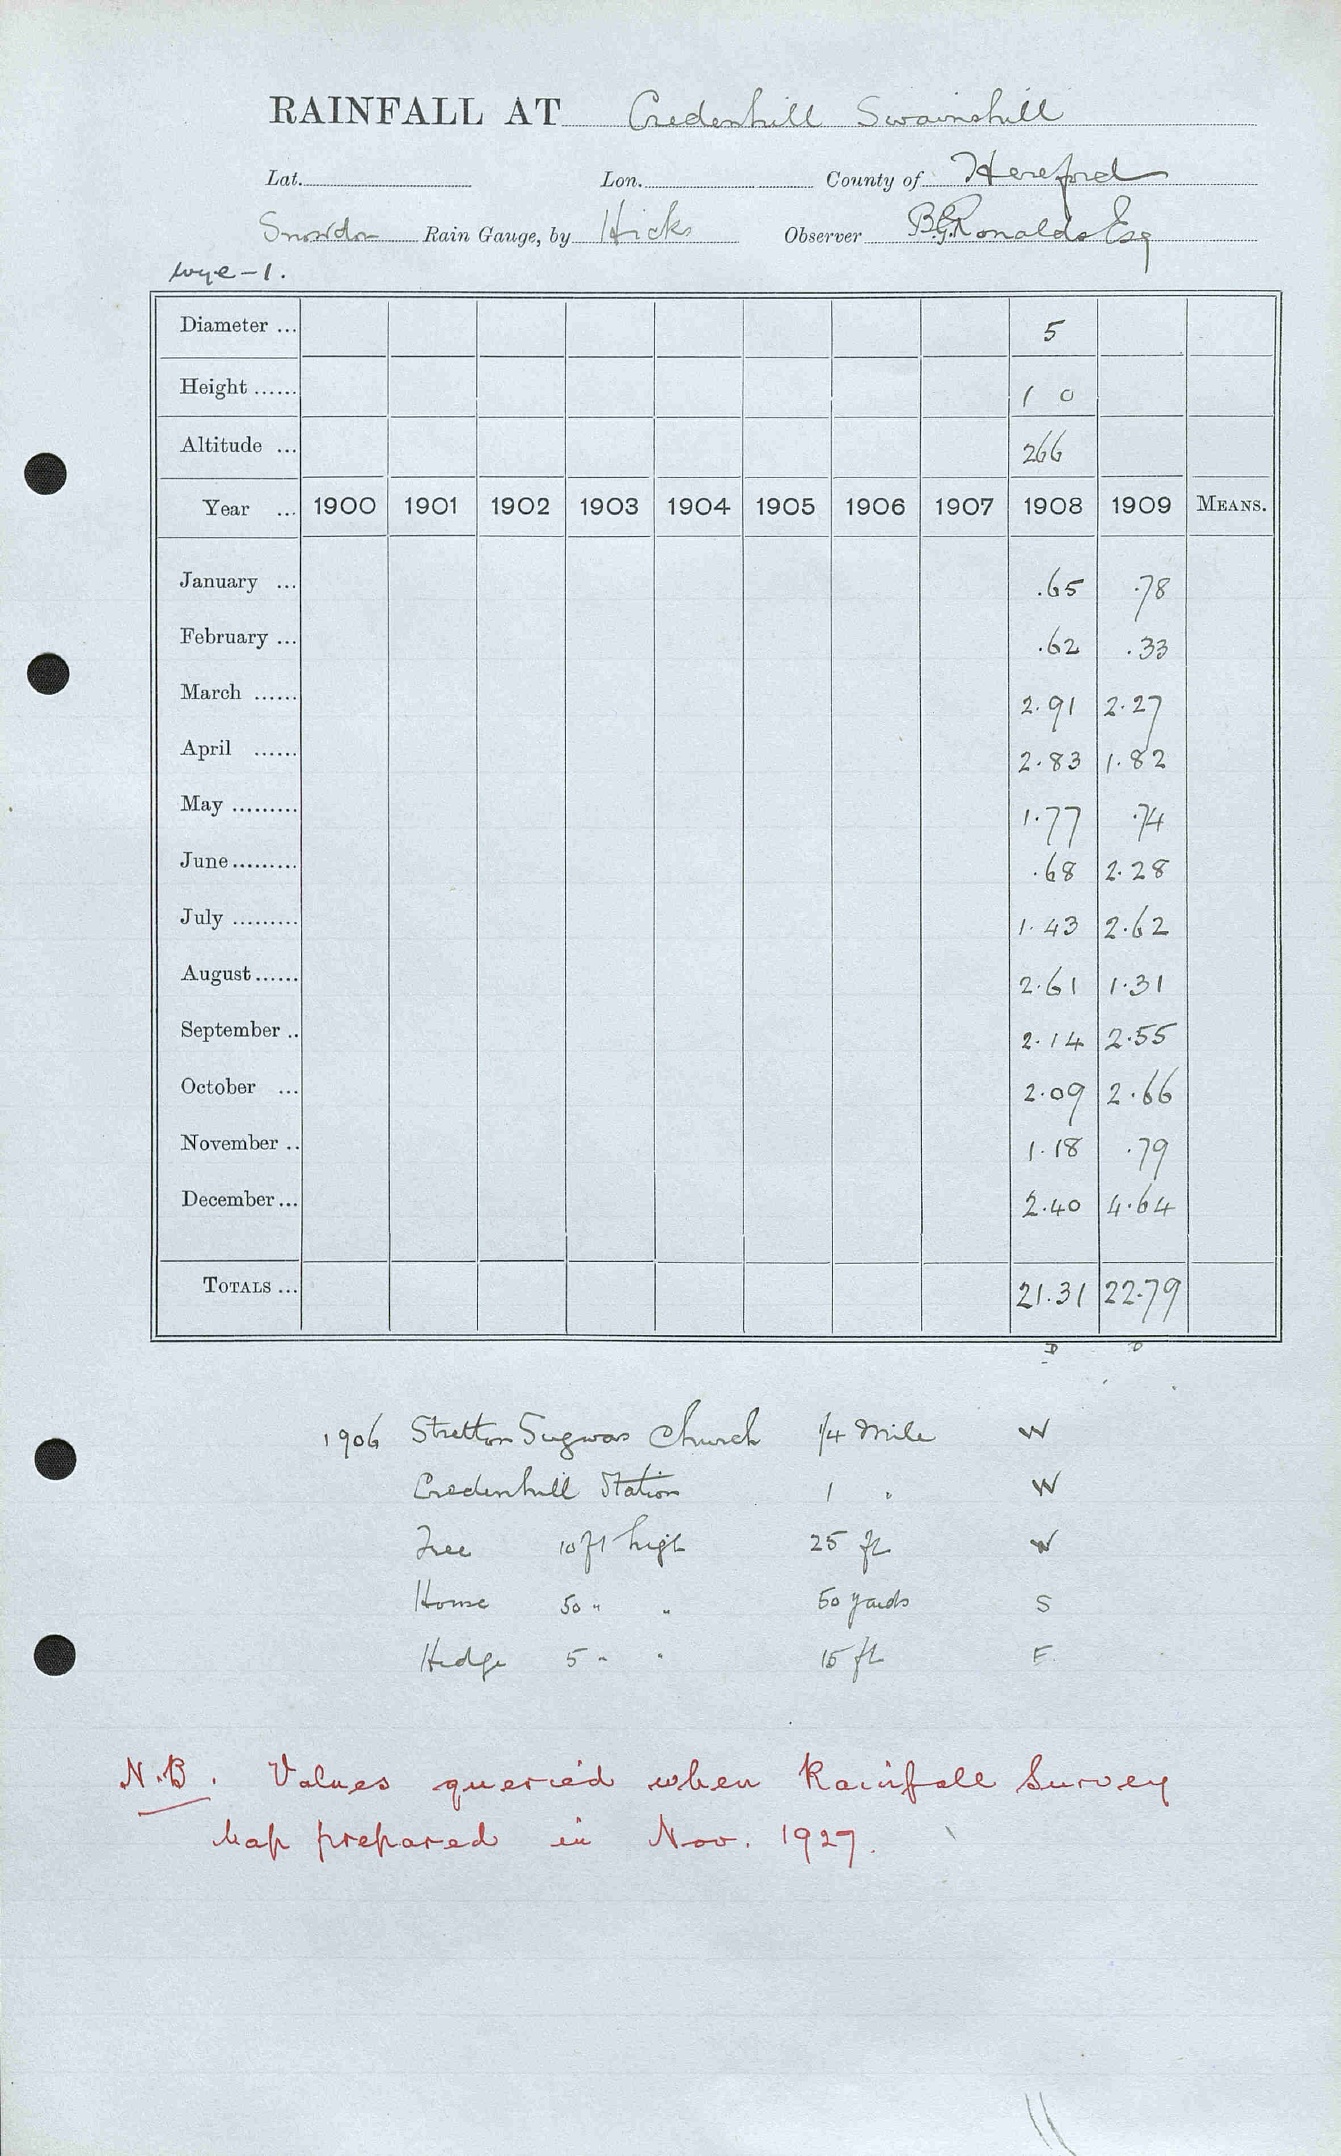 RAINFALL AT Credenhill Swainshill
Lat. Lon. County of Hereford
Snowdon Rain Gauge, by Hicks Observer B.G. Ronalds Esq
Wye - 1.
Diameter ... 5
Height ...... 1 0
Altitude ... 266
Year ... 1900 1901 1902 1903 1904 1905 1906 1907 1908 1909 MEANS.
January ... .65 .78
February ... .62 .33
March ...... 2.91 2.27
April ...... 2.83 1.82
May ......... 1.77 .74
June ......... .68 2.28
July ......... 1.43 2.62
August ...... 2.61 1.31
September .. 2.14 2.55
October ... 2.09 2.66
November .. 1.18 .79
December ... 2.40 4.64
TOTALS ... 21.31 22.79
D D
1906 Stretton Sugwas Church 1/4 Mile W
Credenhill Station 1 " W
Tree 10 ft high 25 ft W
House 50 " " 50 yards S
Hedge 5 " " 15 ft E
N.B. Values queried when Rainfall Survey
Map prepared in Nov. 1927.